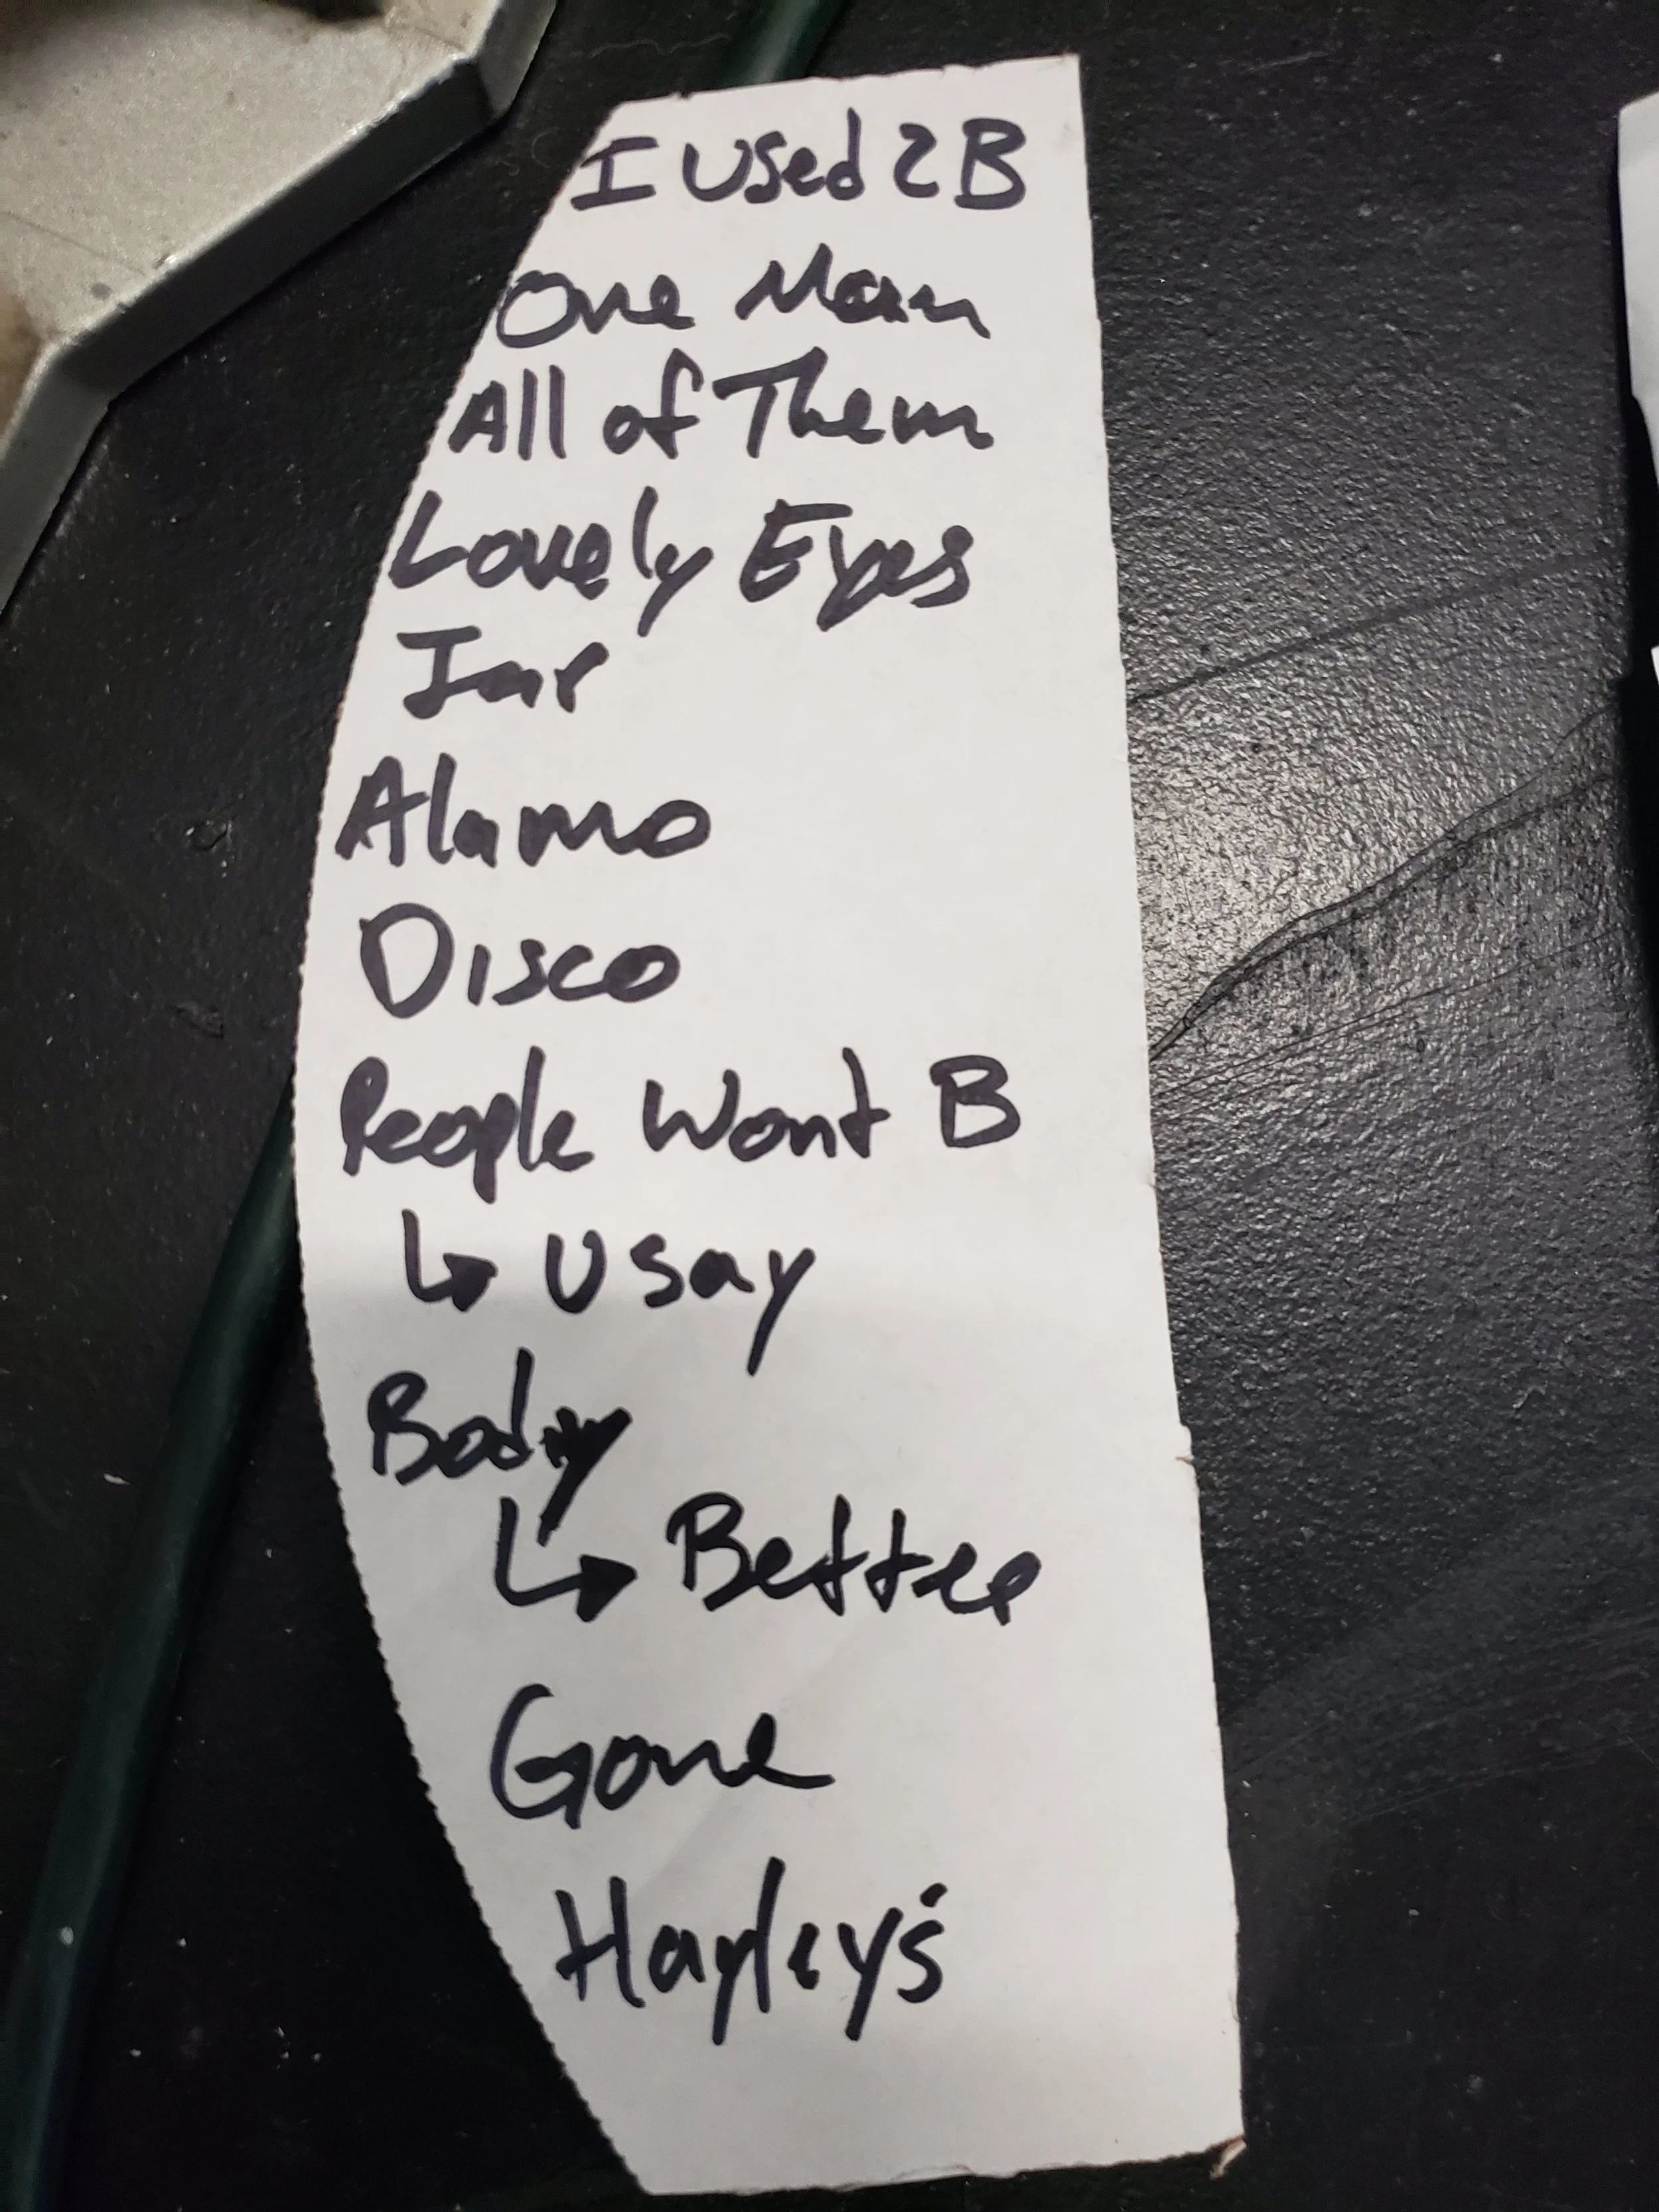 I Used 2 B
One Man
All of Them
Lovely Eyes
Alamo
Disco
People Wont B
↳ U say
Body
↳ Better
Gone
Hayley's